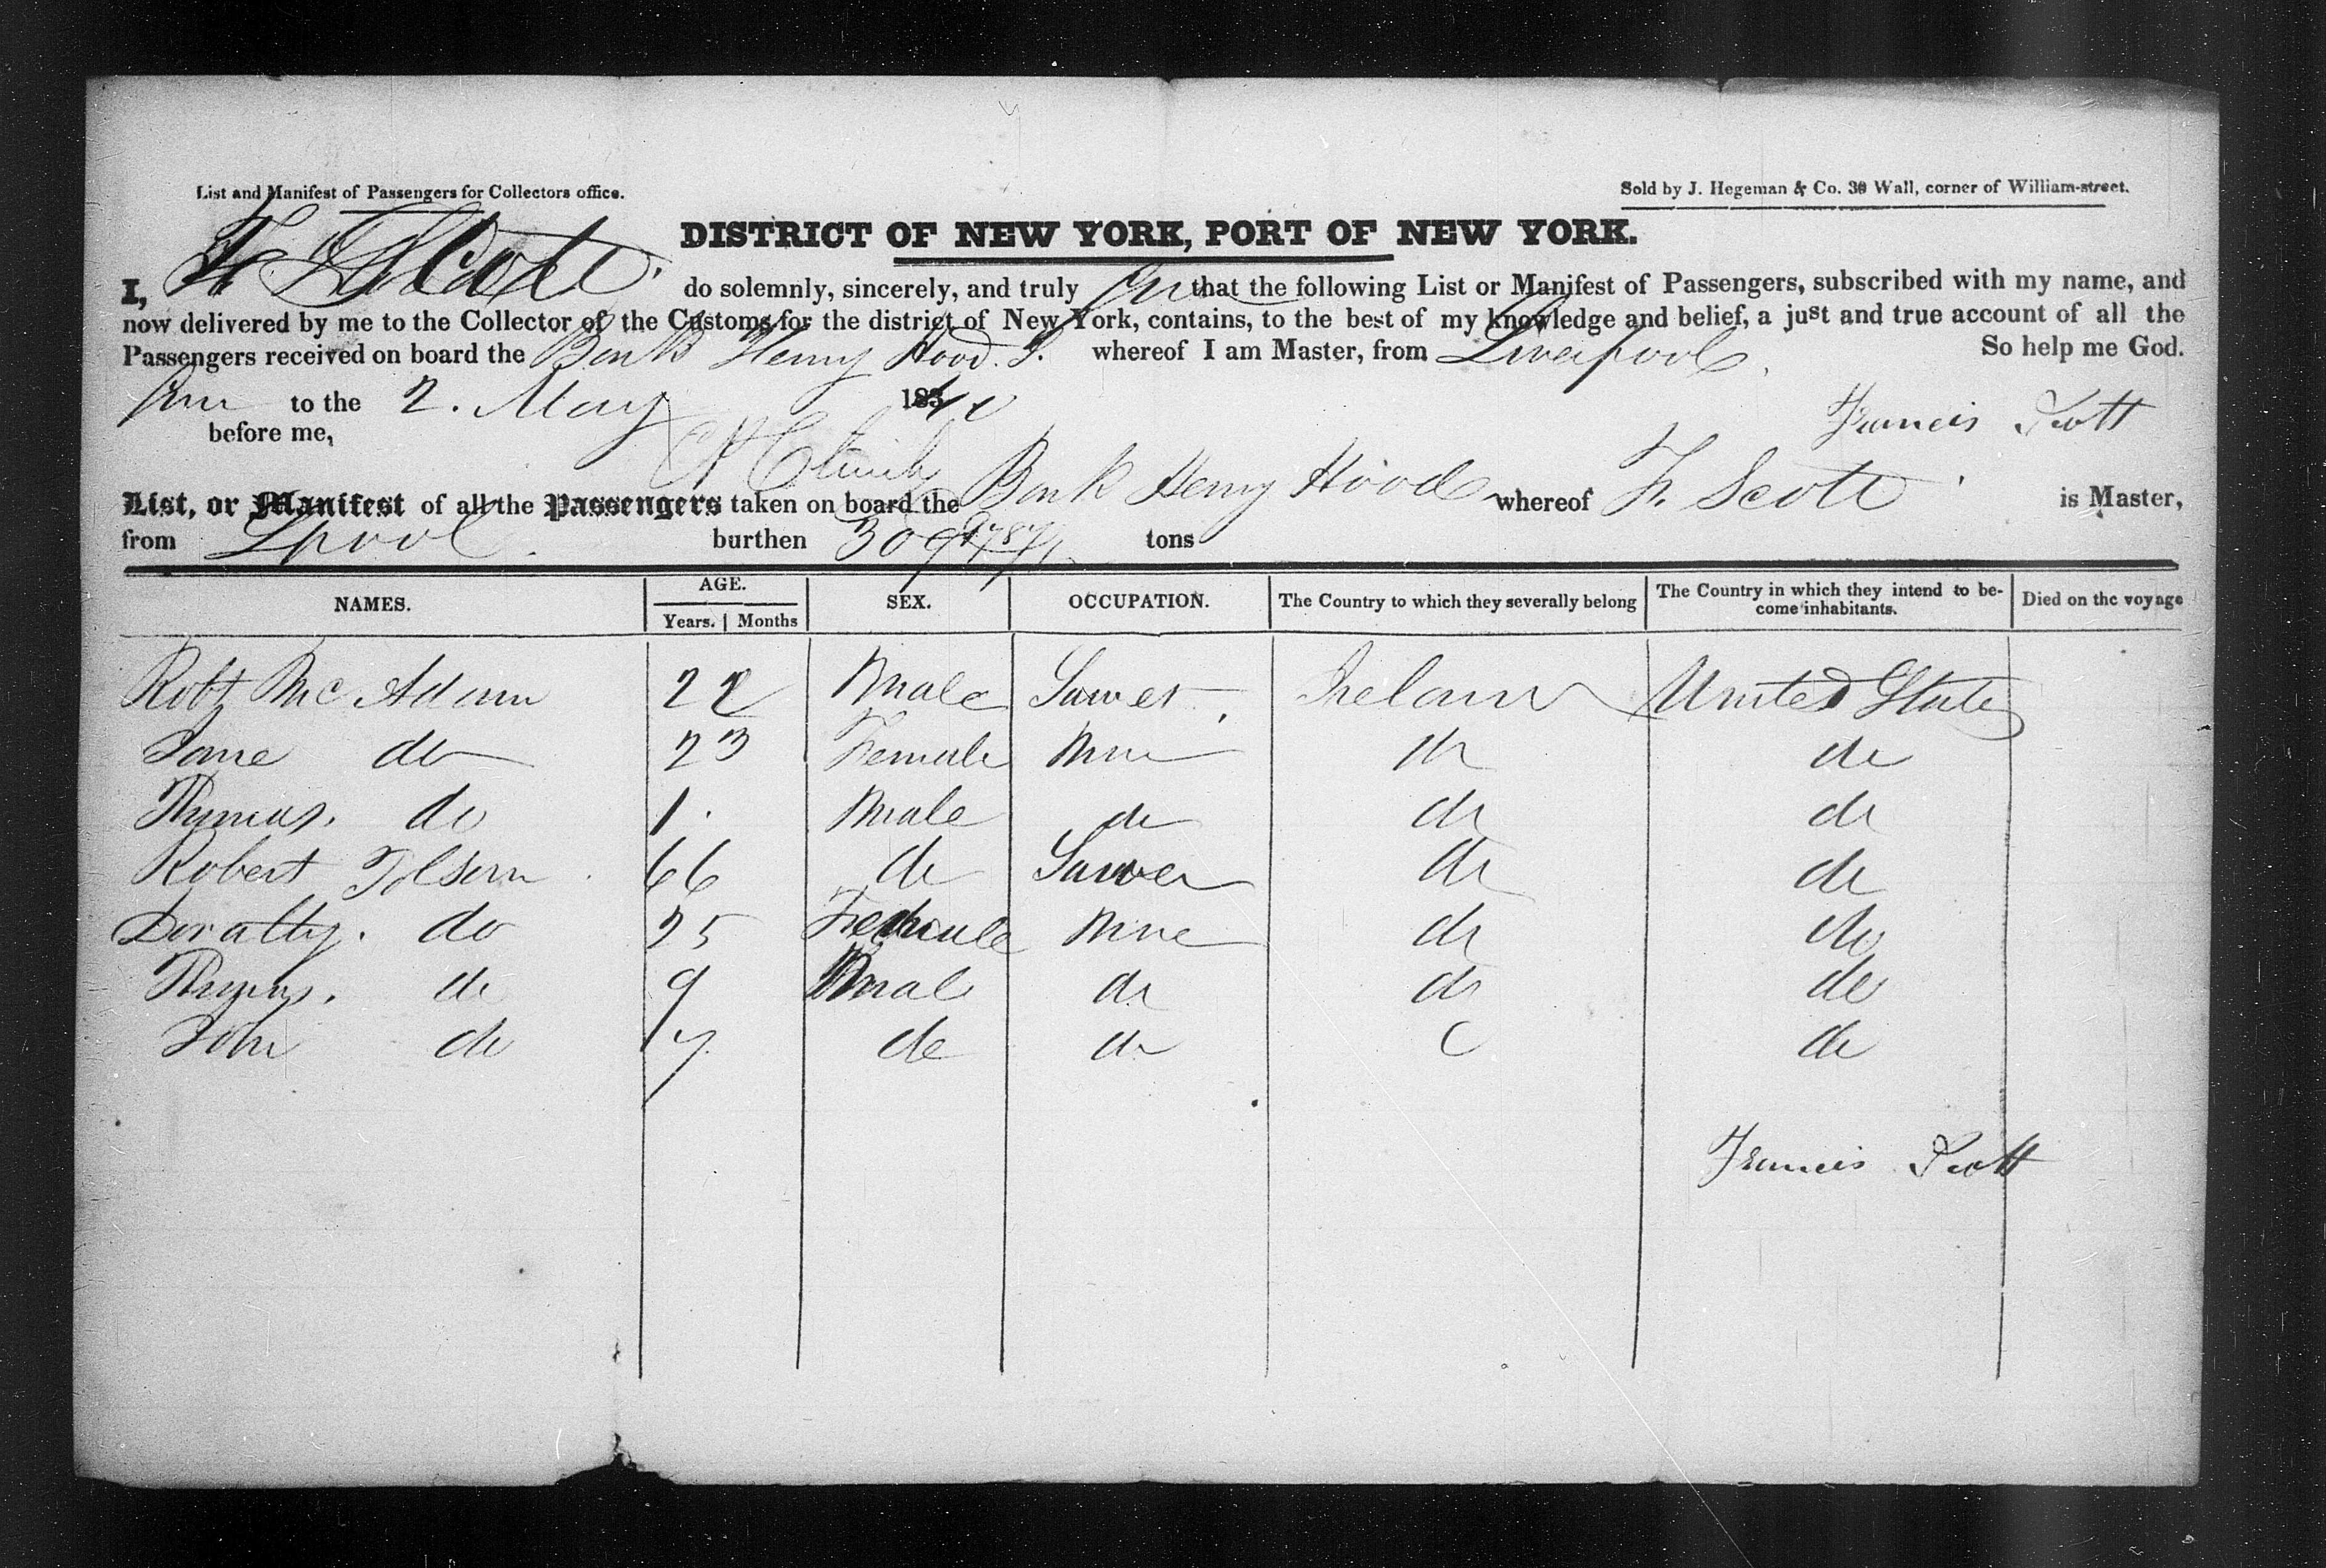 List and Manifest of Passengers for Collectors office.
Sold by J. Hegeman & Co. 30 Wall, corner of William-street.
DISTRICT OF NEW YORK, PORT OF NEW YORK.
I, F Scott do solemnly, sincerely, and truly that the following List or Manifest of Passengers, subscribed with my name, and
now delivered by me to the Collector of the Customs for the district of New York, contains, to the best of my knowledge and belief, a just and true account of all the
Passengers received on board the Bark Henry Hood whereof I am Master, from Liverpool So help me God.
to the 2. May 1840
Francis Scott
before me,
List, or Manifest of all the Passengers taken on board the Bark Henry Hood whereof F. Scott is Master,
from Lpool burthen 309 tons
NAMES. AGE. SEX. OCCUPATION. The Country to which they severally belong The Country in which they intend to be-come inhabitants. Died on the voyage
Years. Months
Robt McAdam 22 Male Sawer Ireland United States
Jane do 23 Female None do do
Thomas. do 1. Male do do do
Robert Tolson 66 do Sawer do do
Doratty. do 25 Female None do do
Thomas. do 9 Male do do do
John do 7 do do do
Francis Scott